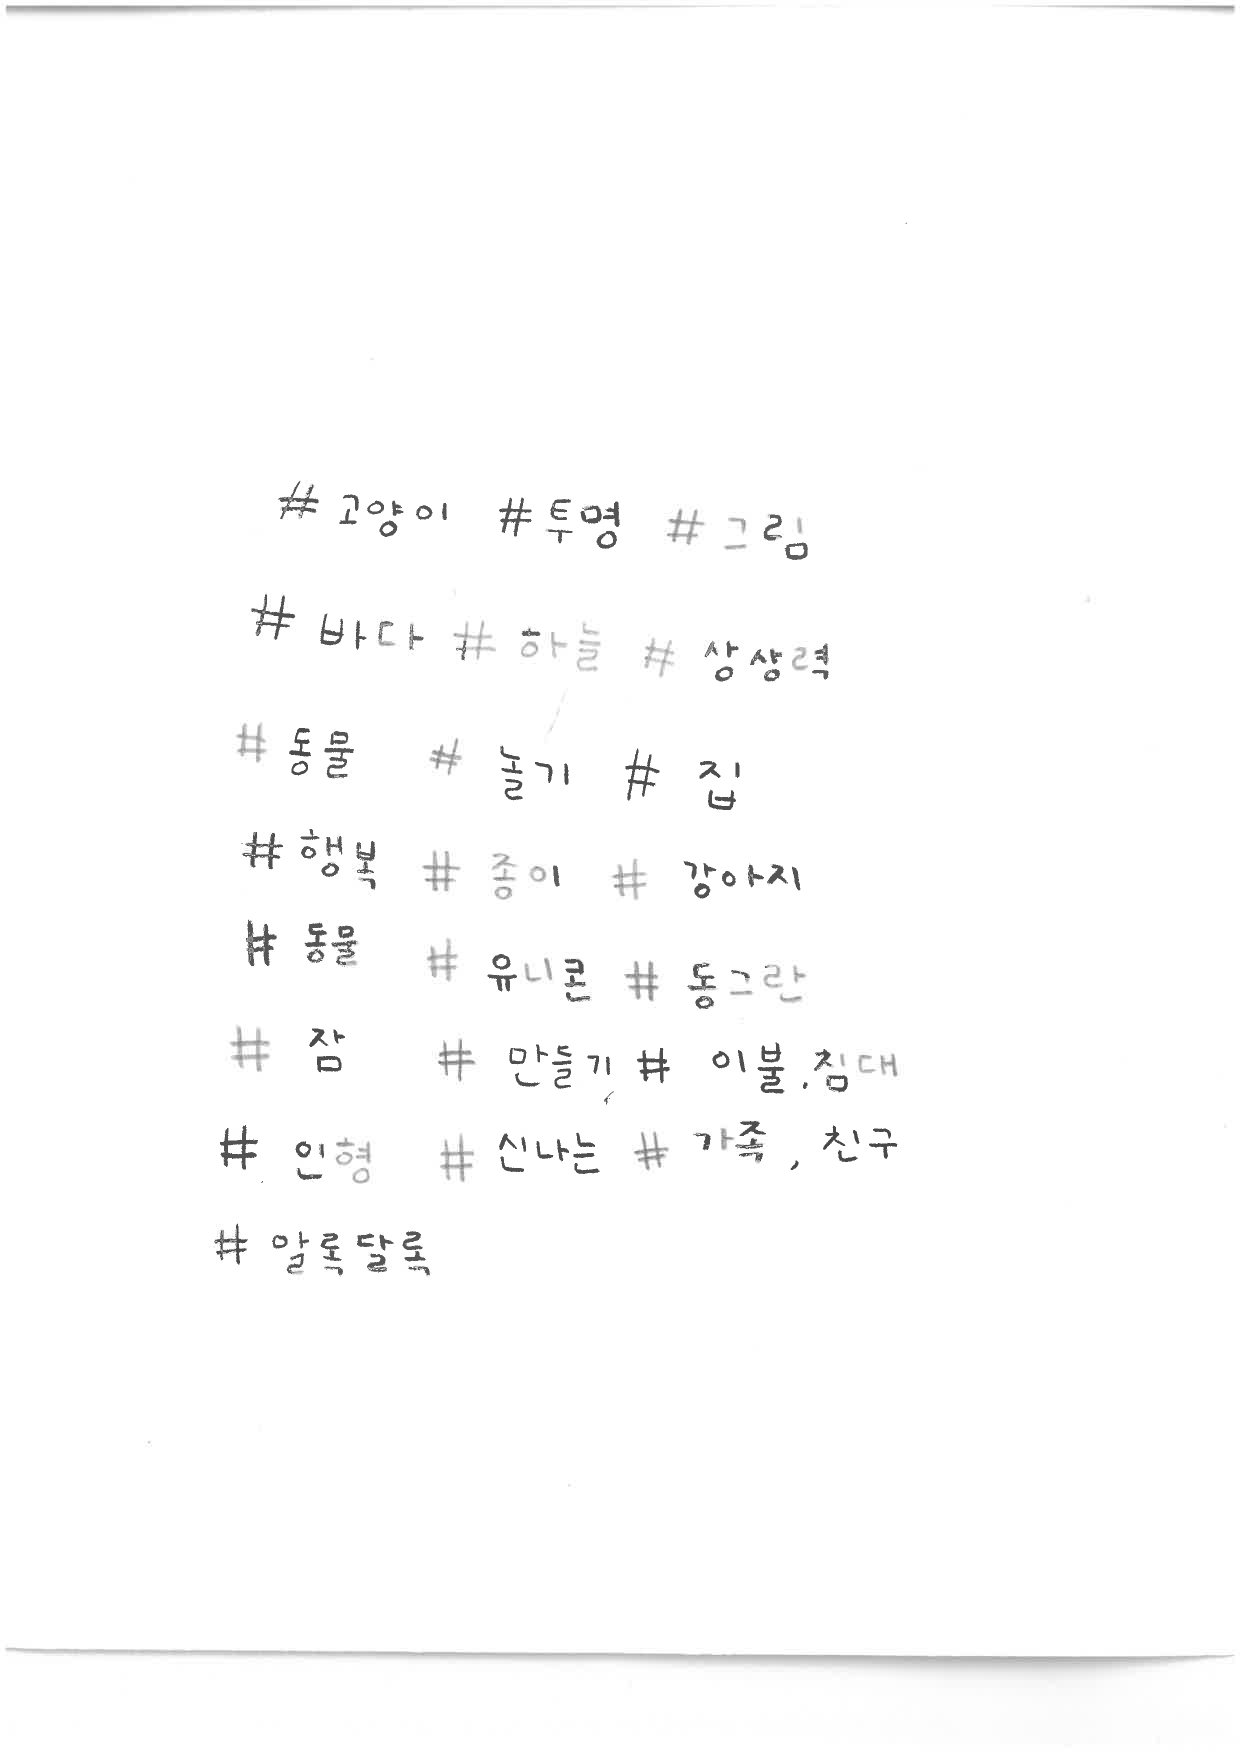 # 고양이 # 투명 # 그림
# 바다 # 하늘 # 상상력
# 동물 # 놀기 # 집
# 행복 # 종이 # 강아지
# 동물 # 유니콘 # 동그란
# 잠 # 만들기 # 이불, 침대
# 인형 # 신나는 # 가족, 친구
# 알록달록